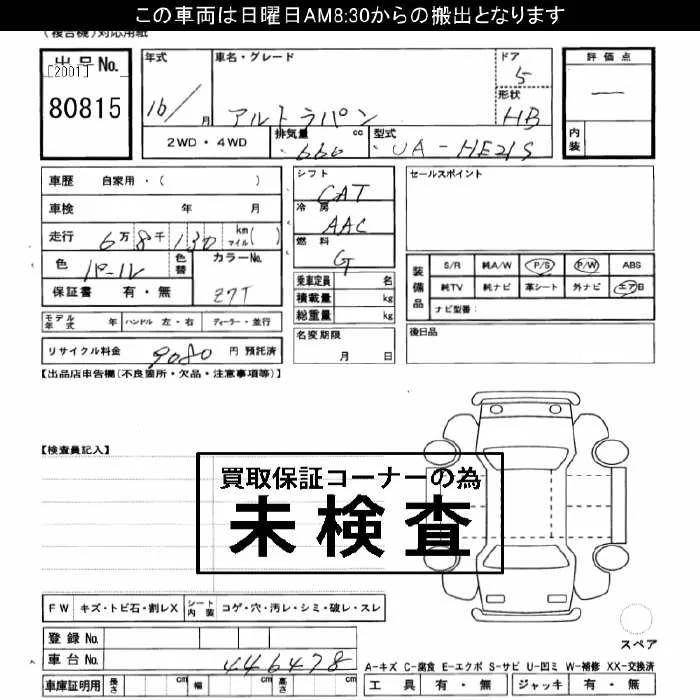 この車両は日曜日AM8:30からの搬出となります
(複合機)対応用紙
出品No.
[2001]
80815
年式
16/ 月
車名・グレード
アルトラパン
ドア
5
形状
HB
2WD・4WD
排気量 cc
660
型式
UA-HE21S
評価点
―
内装
車歴 自家用・( )
車検 年 月
走行 6万8千130 km マイル( )
色 パール
色替
カラーNo.
Z7T
保証書 有・無
モデル年式 年 ハンドル 左・右 ディーラー・並行
リサイクル料金 9080 円 預託済
シフト
CAT
冷房
AAC
燃料
G
乗車定員 名
積載量 kg
総重量 kg
名変期限
月 日
セールスポイント
装備品
S/R 純A/W P/S P/W ABS
純TV 純ナビ 革シート 外ナビ エアB
ナビ型番:
後日品
【出品店申告欄(不良箇所・欠品・注意事項等)】
【検査員記入】
買取保証コーナーの為
未検査
FW キズ・トビ石・割レX シート内装 コゲ・穴・汚レ・シミ・破レ・スレ
登録No.
車台No. 446478
車庫証明用 長さ cm 幅 cm 高さ cm
スペア
A-キズ C-腐食 E-エクボ S-サビ U-凹ミ W-補修 XX-交換済
工具 有・無 ジャッキ 有・無